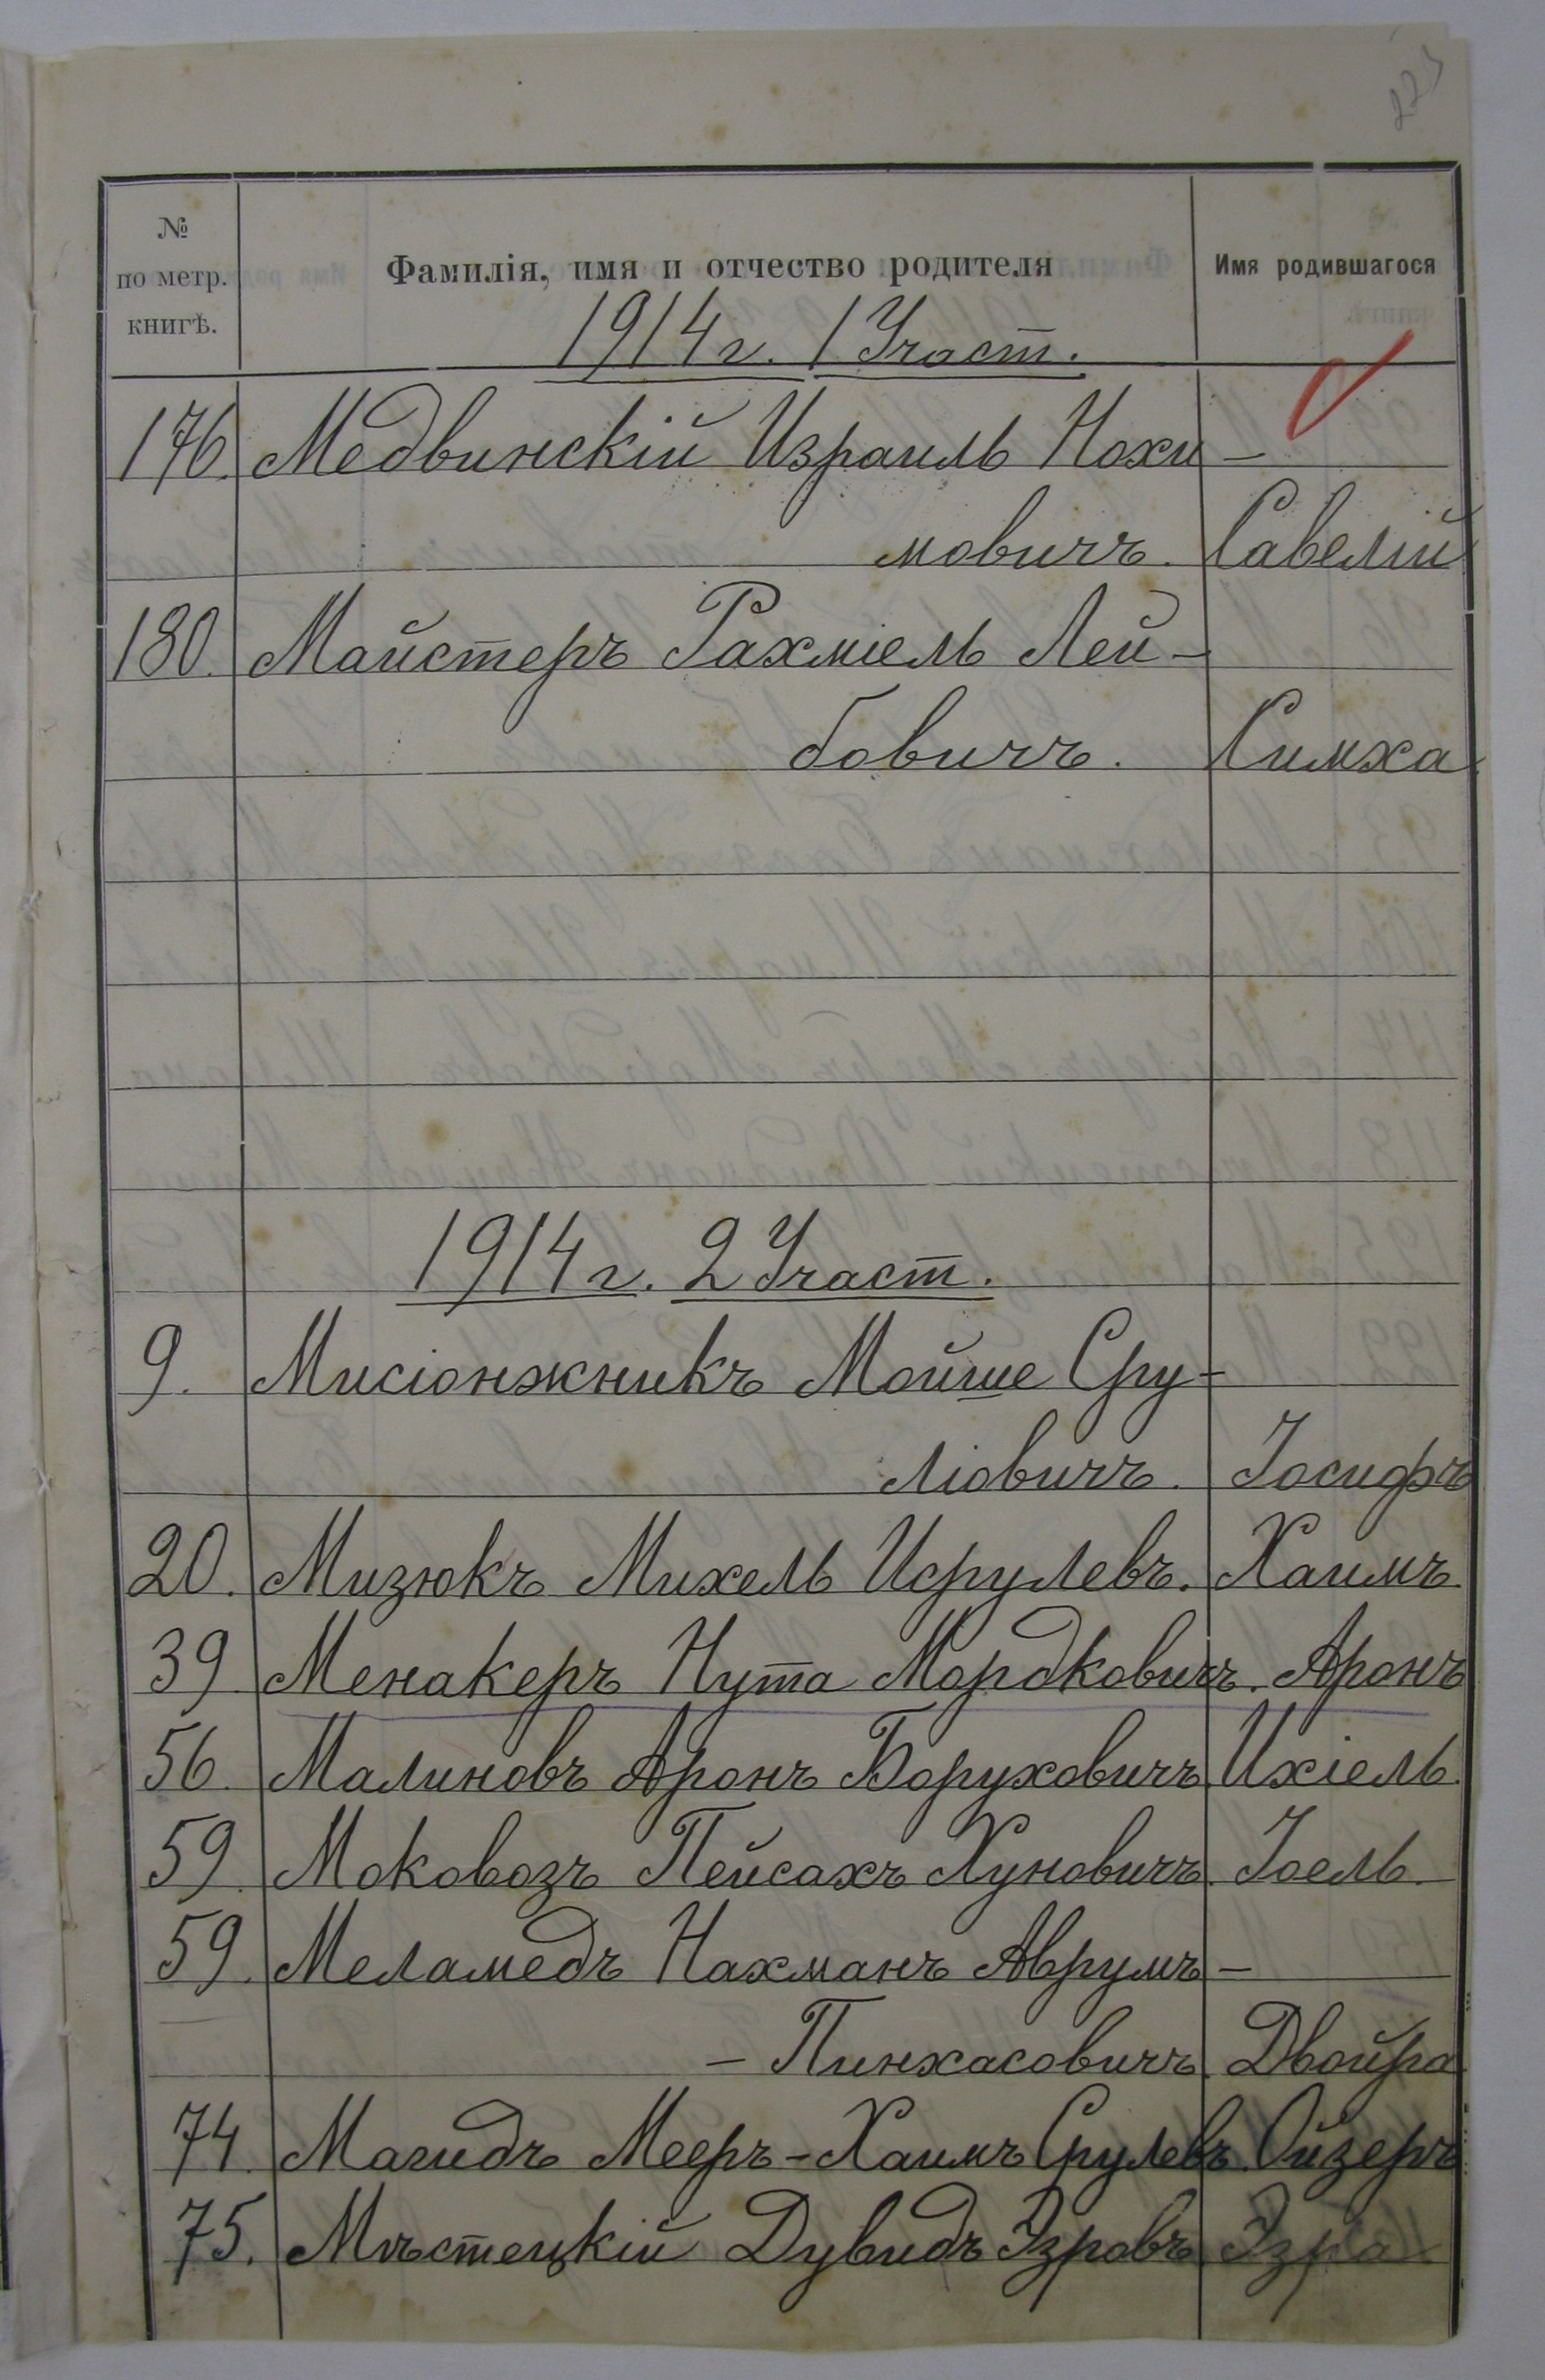 № по метр. книгѣ. Фамилія, имя и отчество родителя Имя родившагося
1914 г. 1 Участ.
176. Медвинскій Израиль Нохи-
мовичъ. Савелій
180. Майстеръ Рахміель Лей-
бовичъ. Симха
1914 г. 2 Участ.
9. Мисіонжникъ Мойше Сру-
ліовичъ. Іосифъ
20. Мизюкъ Михель Исрулевъ. Хаимъ.
39 Менакеръ Нута Мордковичъ. Аронъ
56. Малиновъ Аронъ Боруховичъ. Ихіель.
59. Моковозъ Пейсахъ Хуновичъ. Іоель.
59. Меламедъ Нахманъ Аврумъ-
- Пинхасовичъ. Двойра
74. Магидъ Мееръ-Хаимъ Срулевъ. Ойзеръ
75. Мѣстецкій Дувидъ Эзровъ Эзра